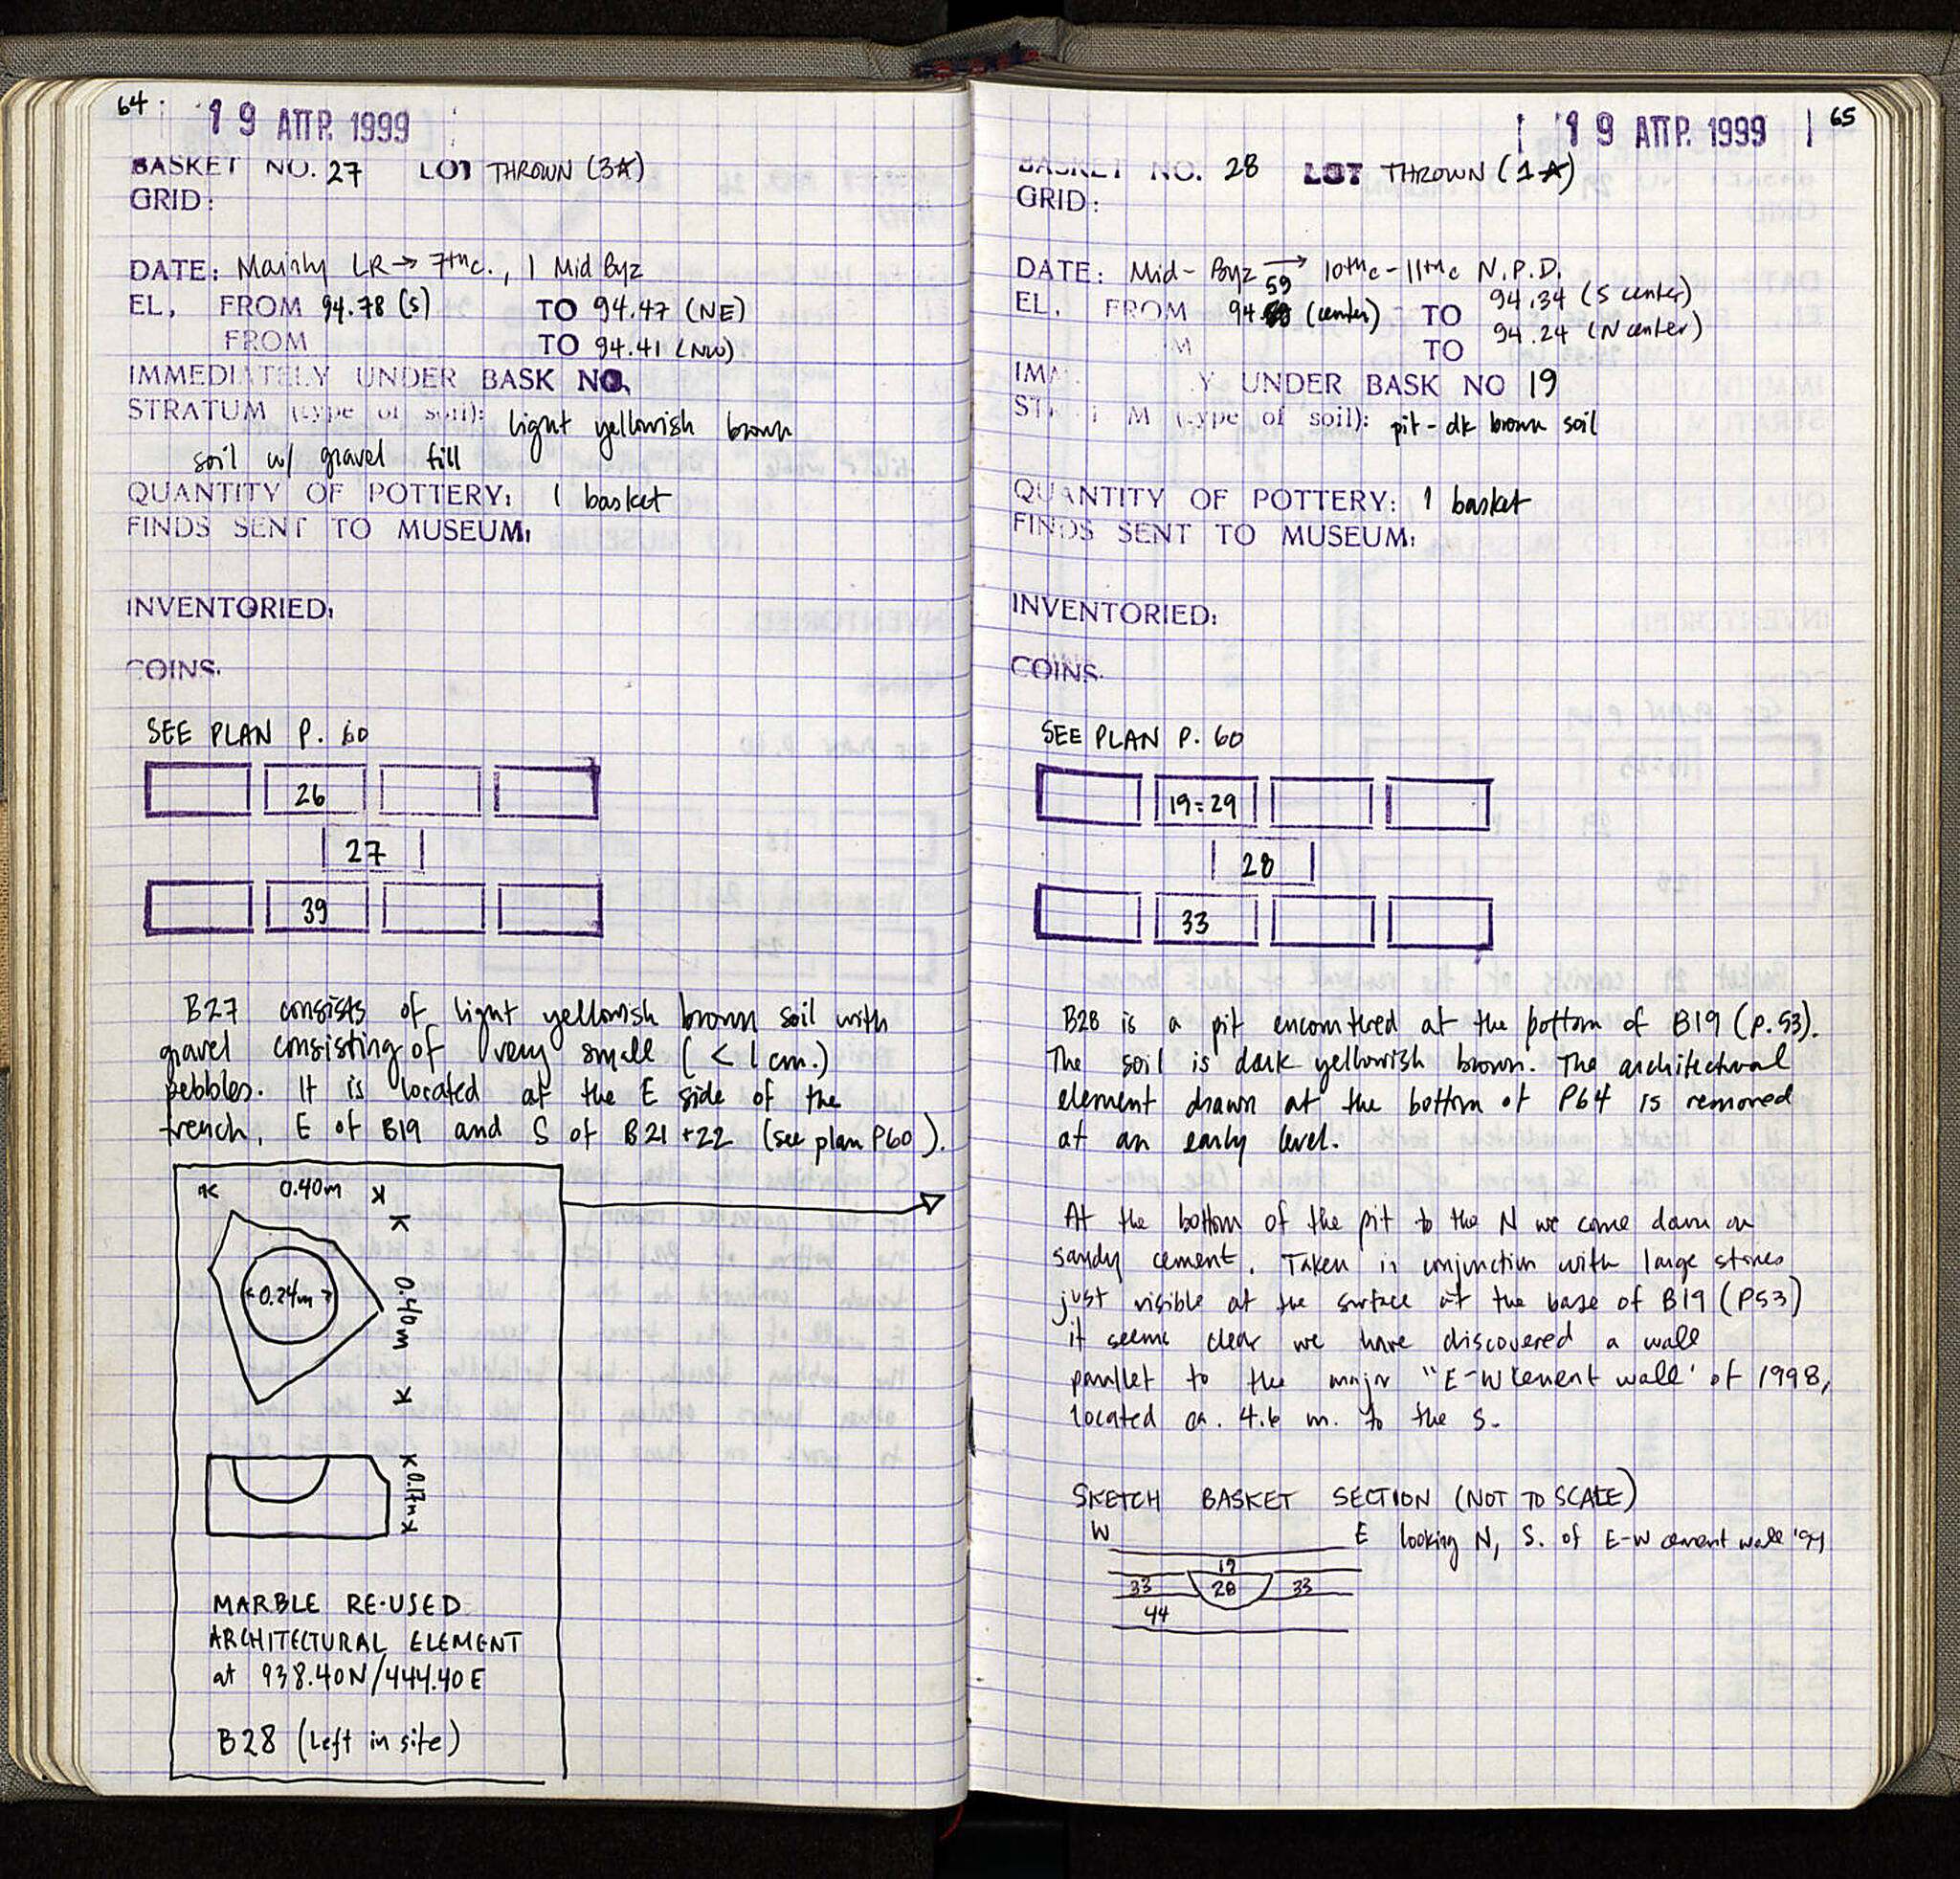 64
19 ΑΠΡ. 1999
BASKET NO. 27 LOT THROWN (3A)
GRID:
DATE: Mainly LR → 7th c., 1 Mid Byz
EL, FROM 94.78 (S) TO 94.47 (NE)
FROM TO 94.41 (NW)
IMMEDIATELY UNDER BASK NO.
STRATUM (type of soil): light yellowish brown
soil w/ gravel fill
QUANTITY OF POTTERY: 1 basket
FINDS SENT TO MUSEUM:
INVENTORIED:
COINS.
SEE PLAN P. 60
26
27
39
B27 consists of light yellowish brown soil with
gravel consisting of very small ( < 1 cm.)
pebbles. It is located at the E side of the
trench, E of B19 and S of B21 + 22 (see plan P60).
0.40m
0.24m
0.40m
0.17m
MARBLE RE-USED
ARCHITECTURAL ELEMENT
at 938.40N/444.40E
B28 (left in site)
65
19 ΑΠΡ. 1999
BASKET NO. 28 LOT THROWN (1A)
GRID:
DATE: Mid-Byz → 10th c - 11th c N.P.D.
EL, FROM 94.59 (center) TO 94.34 (S center)
M TO 94.24 (N center)
IMM Y UNDER BASK NO 19
ST M (type of soil): pit - dk brown soil
QUANTITY OF POTTERY: 1 basket
FINDS SENT TO MUSEUM:
INVENTORIED:
COINS.
SEE PLAN P. 60
19=29
28
33
B28 is a pit encountered at the bottom of B19 (p. 53).
The soil is dark yellowish brown. The architectural
element drawn at the bottom of P64 is removed
at an early level.
At the bottom of the pit to the N we come down on
sandy cement. Taken in conjunction with large stones
just visible at the surface at the base of B19 (P53)
it seems clear we have discovered a wall
parallel to the major "E-W cement wall' of 1998,
located ca. 4.6 m. to the S.
SKETCH BASKET SECTION (NOT TO SCALE)
W E looking N, S. of E-W cement wall '99
19
33 28 33
44